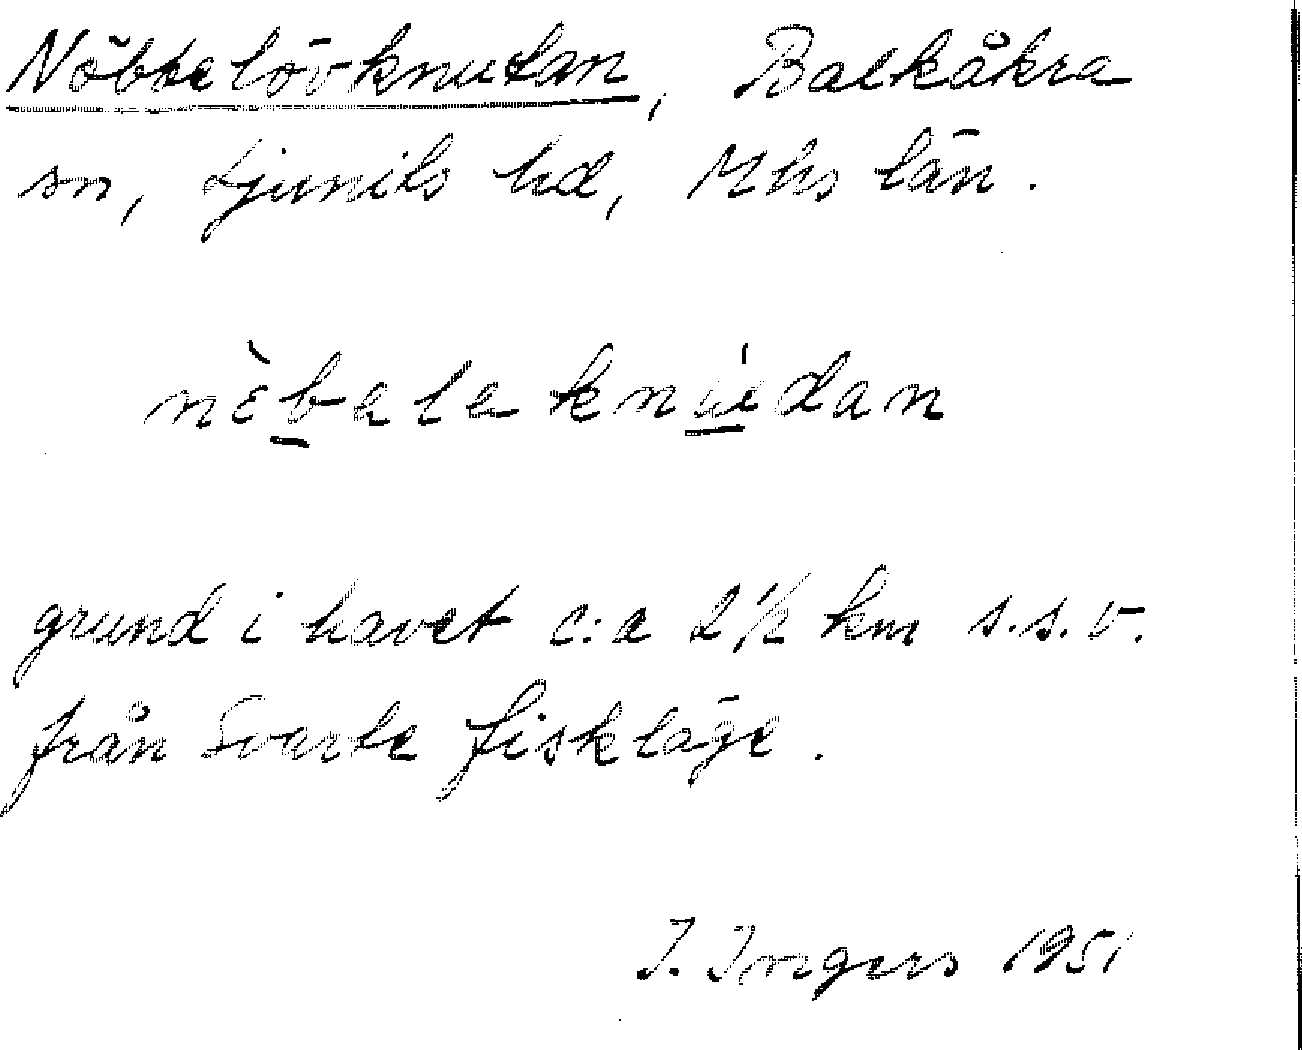 Nöbbelövknutan, Balkåkra
sn, Ljunits hd, Mhs län.
nὲbele knúedan
grund i havet c:a 2 1/2 km s.s.v.
från Svarte fiskläge.
I. Ingers 1951